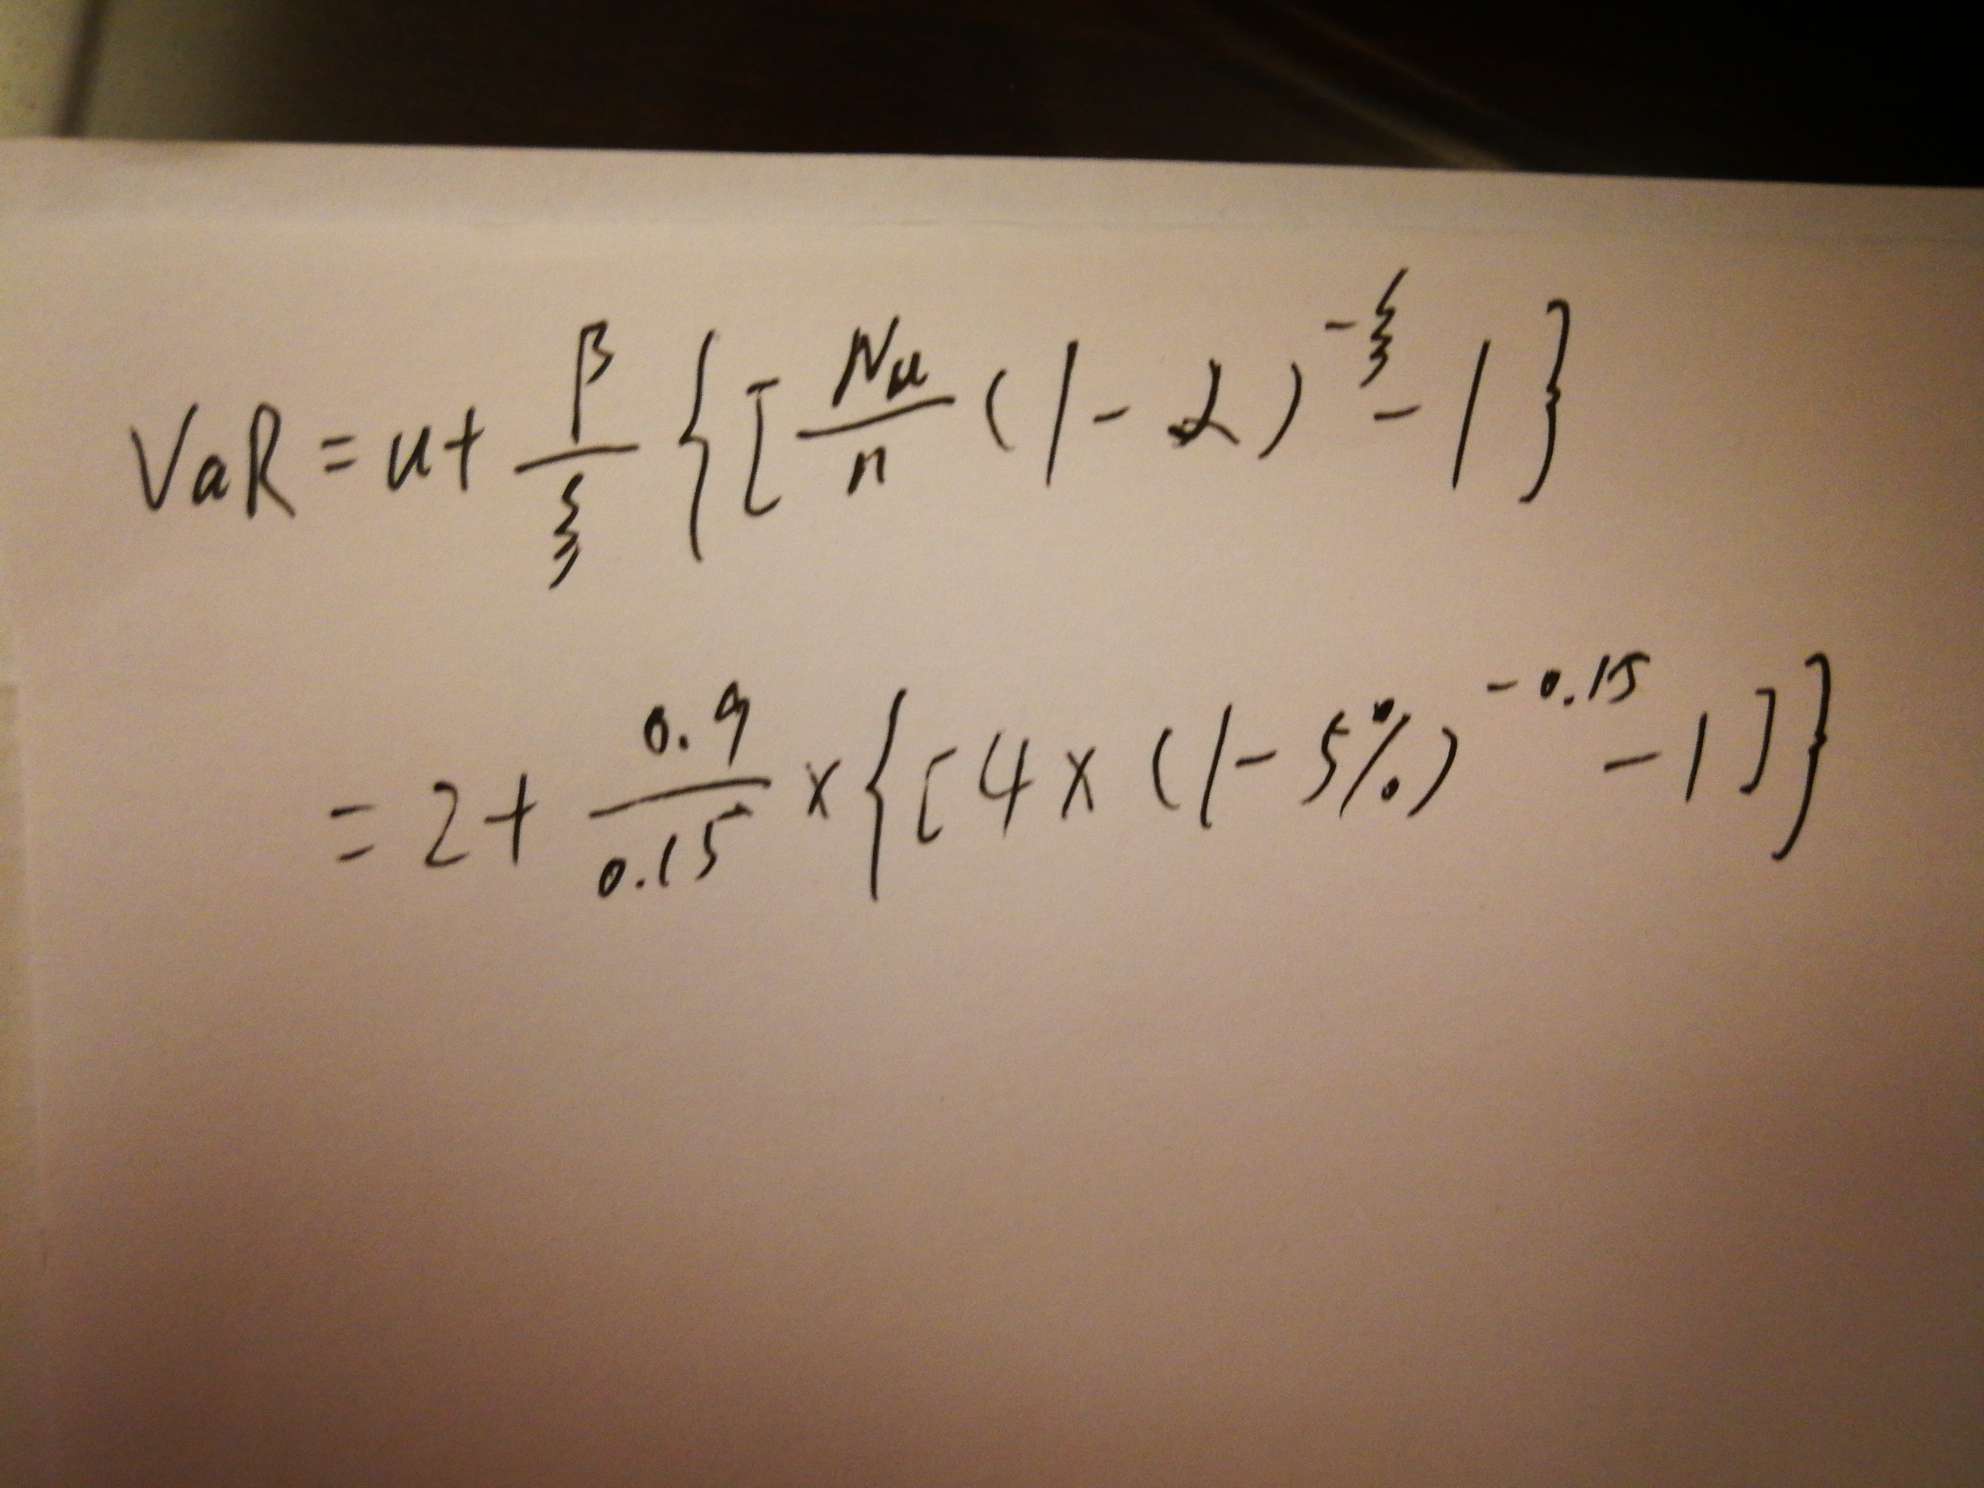 VaR = u + β/ξ {[Nu/n (1 - α)^-ξ - 1}
= 2 + 0.9/0.15 × {[4 × (1 - 5%)^-0.15 - 1]}